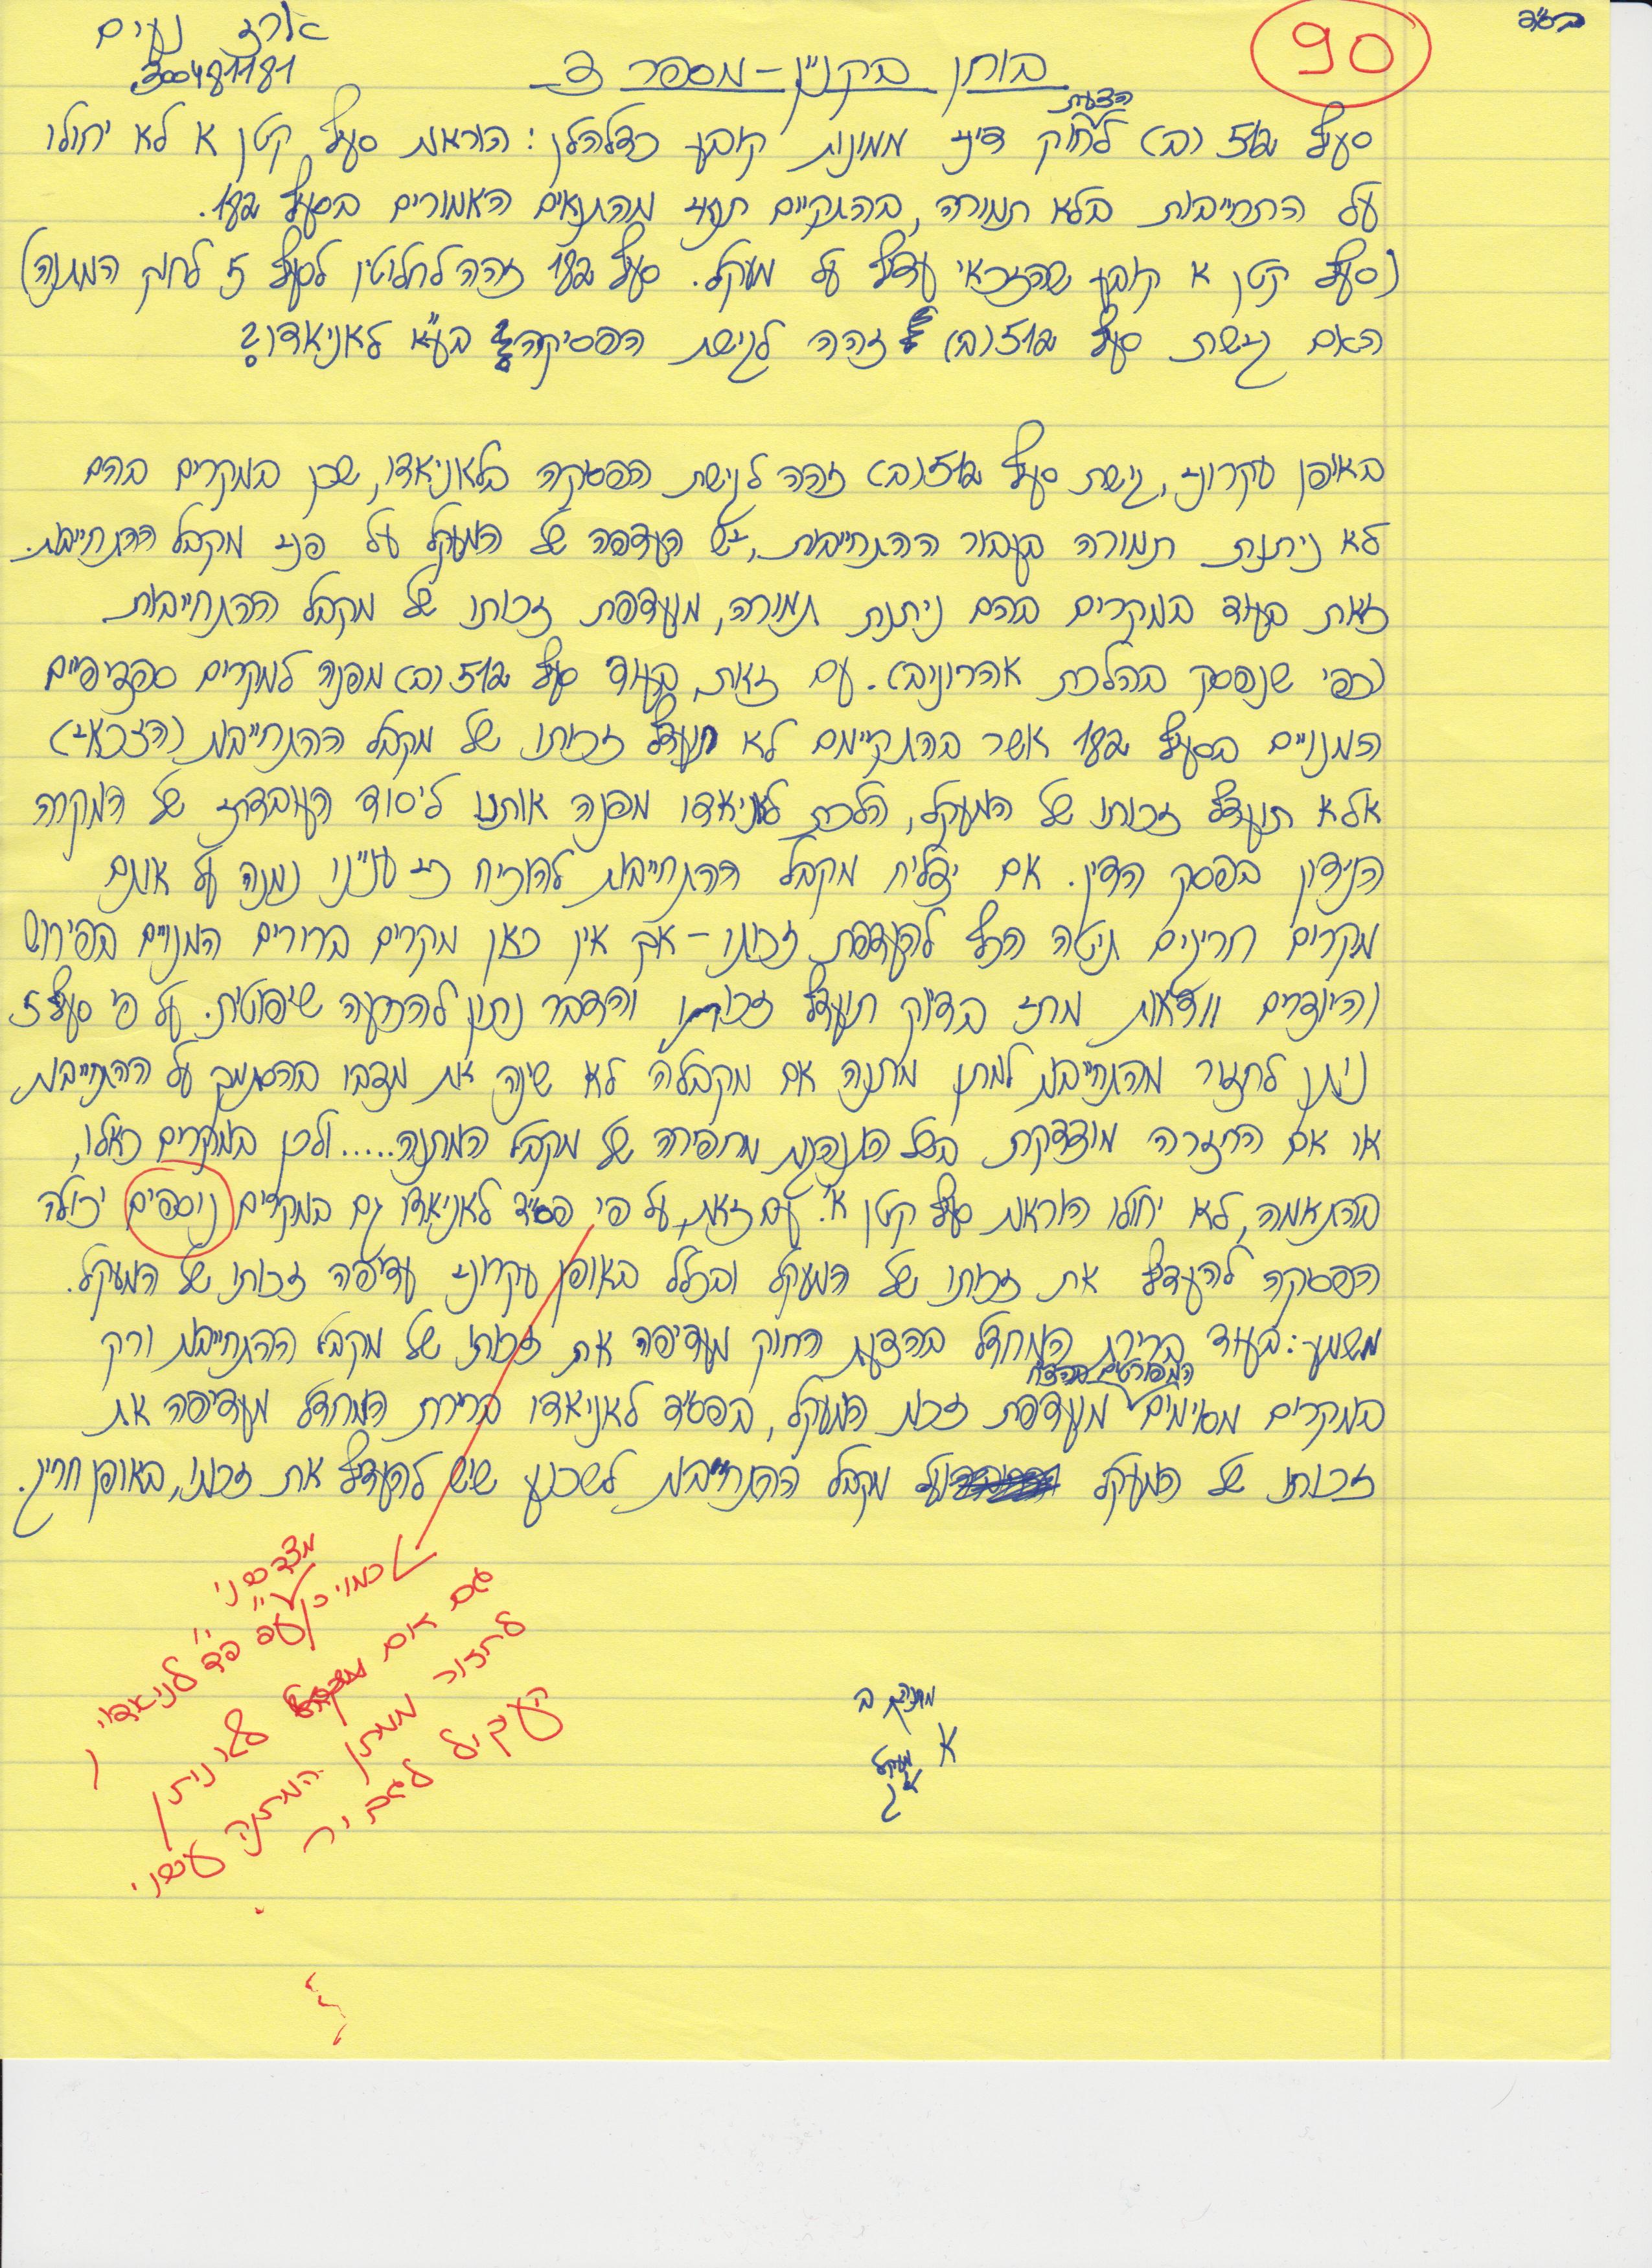 בס"ד
90
ארז נעים
300481181
בוחן בקניין - מספר 3
הצעת
סעיף 513(ב) לחוק דיני ממונות קובע כדלהלן: הוראות סעיף קטן א לא יחולו
על התחייבות בלא תמורה, בהתקיים תנאי מהתנאים האמורים בסעיף
(סעיף קטן א קובע שהזכאי עדיף על מעקל. סעיף זהה לחלוטין לסעיף 5 לחוק המתנה)
האם גישת סעיף 513(ב) זהה לגישת הפסיקה בע"א לאניאדו?
באופן עקרוני, גישת סעיף 513(ב) זהה לגישת הפסיקה בלאניאדו, שכן במקרים בהם
לא ניתנת תמורה בעבור ההתחייבות, יש העדפה של המעקל על פני מקבל ההתחייבות.
זאת בעוד במקרים בהם ניתנת תמורה, מועדפת זכותו של מקבל ההתחייבות
(כפי שנפסק בהלכת אהרונוב). עם זאת, בעוד סעיף 513(ב) מפנה למקרים ספציפיים
המנויים בסעיף אשר בהתקיימם לא תועדף זכותו של מקבל ההתחייבות (הזכאי)
אלא תועדף זכותו של המעקל, הלכת לאניאדו מפנה אותנו ליסוד העובדתי של המקרה
הנידון בפסק הדין. אם יצליח מקבל ההתחייבות להוכיח כי עניינו נמנה על אותם
מקרים חריגים תיטה הכף להעדפת זכותו - אך אין כאן מקרים ברורים המנויים בפירוש
(והיוצרים וודאות מתי בדיוק תועדף זכותו) והדבר נתון להכרעה שיפוטית. על פי סעיף 5
ניתן לחזור מהתחייבות למתן מתנה אם מקבלה לא שינה את מצבו בהסתמך על ההתחייבות
או אם החזרה מוצדקת בשל התנהגות מחפירה של מקבל המתנה..... ולכן במקרים כאלו,
בהתאמה, לא יחולו הוראות סעיף קטן א'. עם זאת, על פי פס"ד לאניאדו גם במקרים נוספים יכולה
הפסיקה להעדיף את זכותו של המעקל ובכלל באופן עקרוני עדיפה זכותו של המעקל.
משמע: בעוד ברירת המחדל בהצעת החוק מעדיפה את זכותו של מקבל ההתחייבות ורק
המפורטים
במקרים מסוימים מועדפת זכות המעקל, בפס"ד לאניאדו ברירת המחדל מעדיפה את
זכותו של המעקל ועל מקבל ההתחייבות לשכנע שיש להעדיף את זכותו, באופן חריג.
כמו כן עפ"י פד לניאדו,
גם אם לא ניתן
לחזור ממתן המתנה עפ"י
ב
א
מעקל